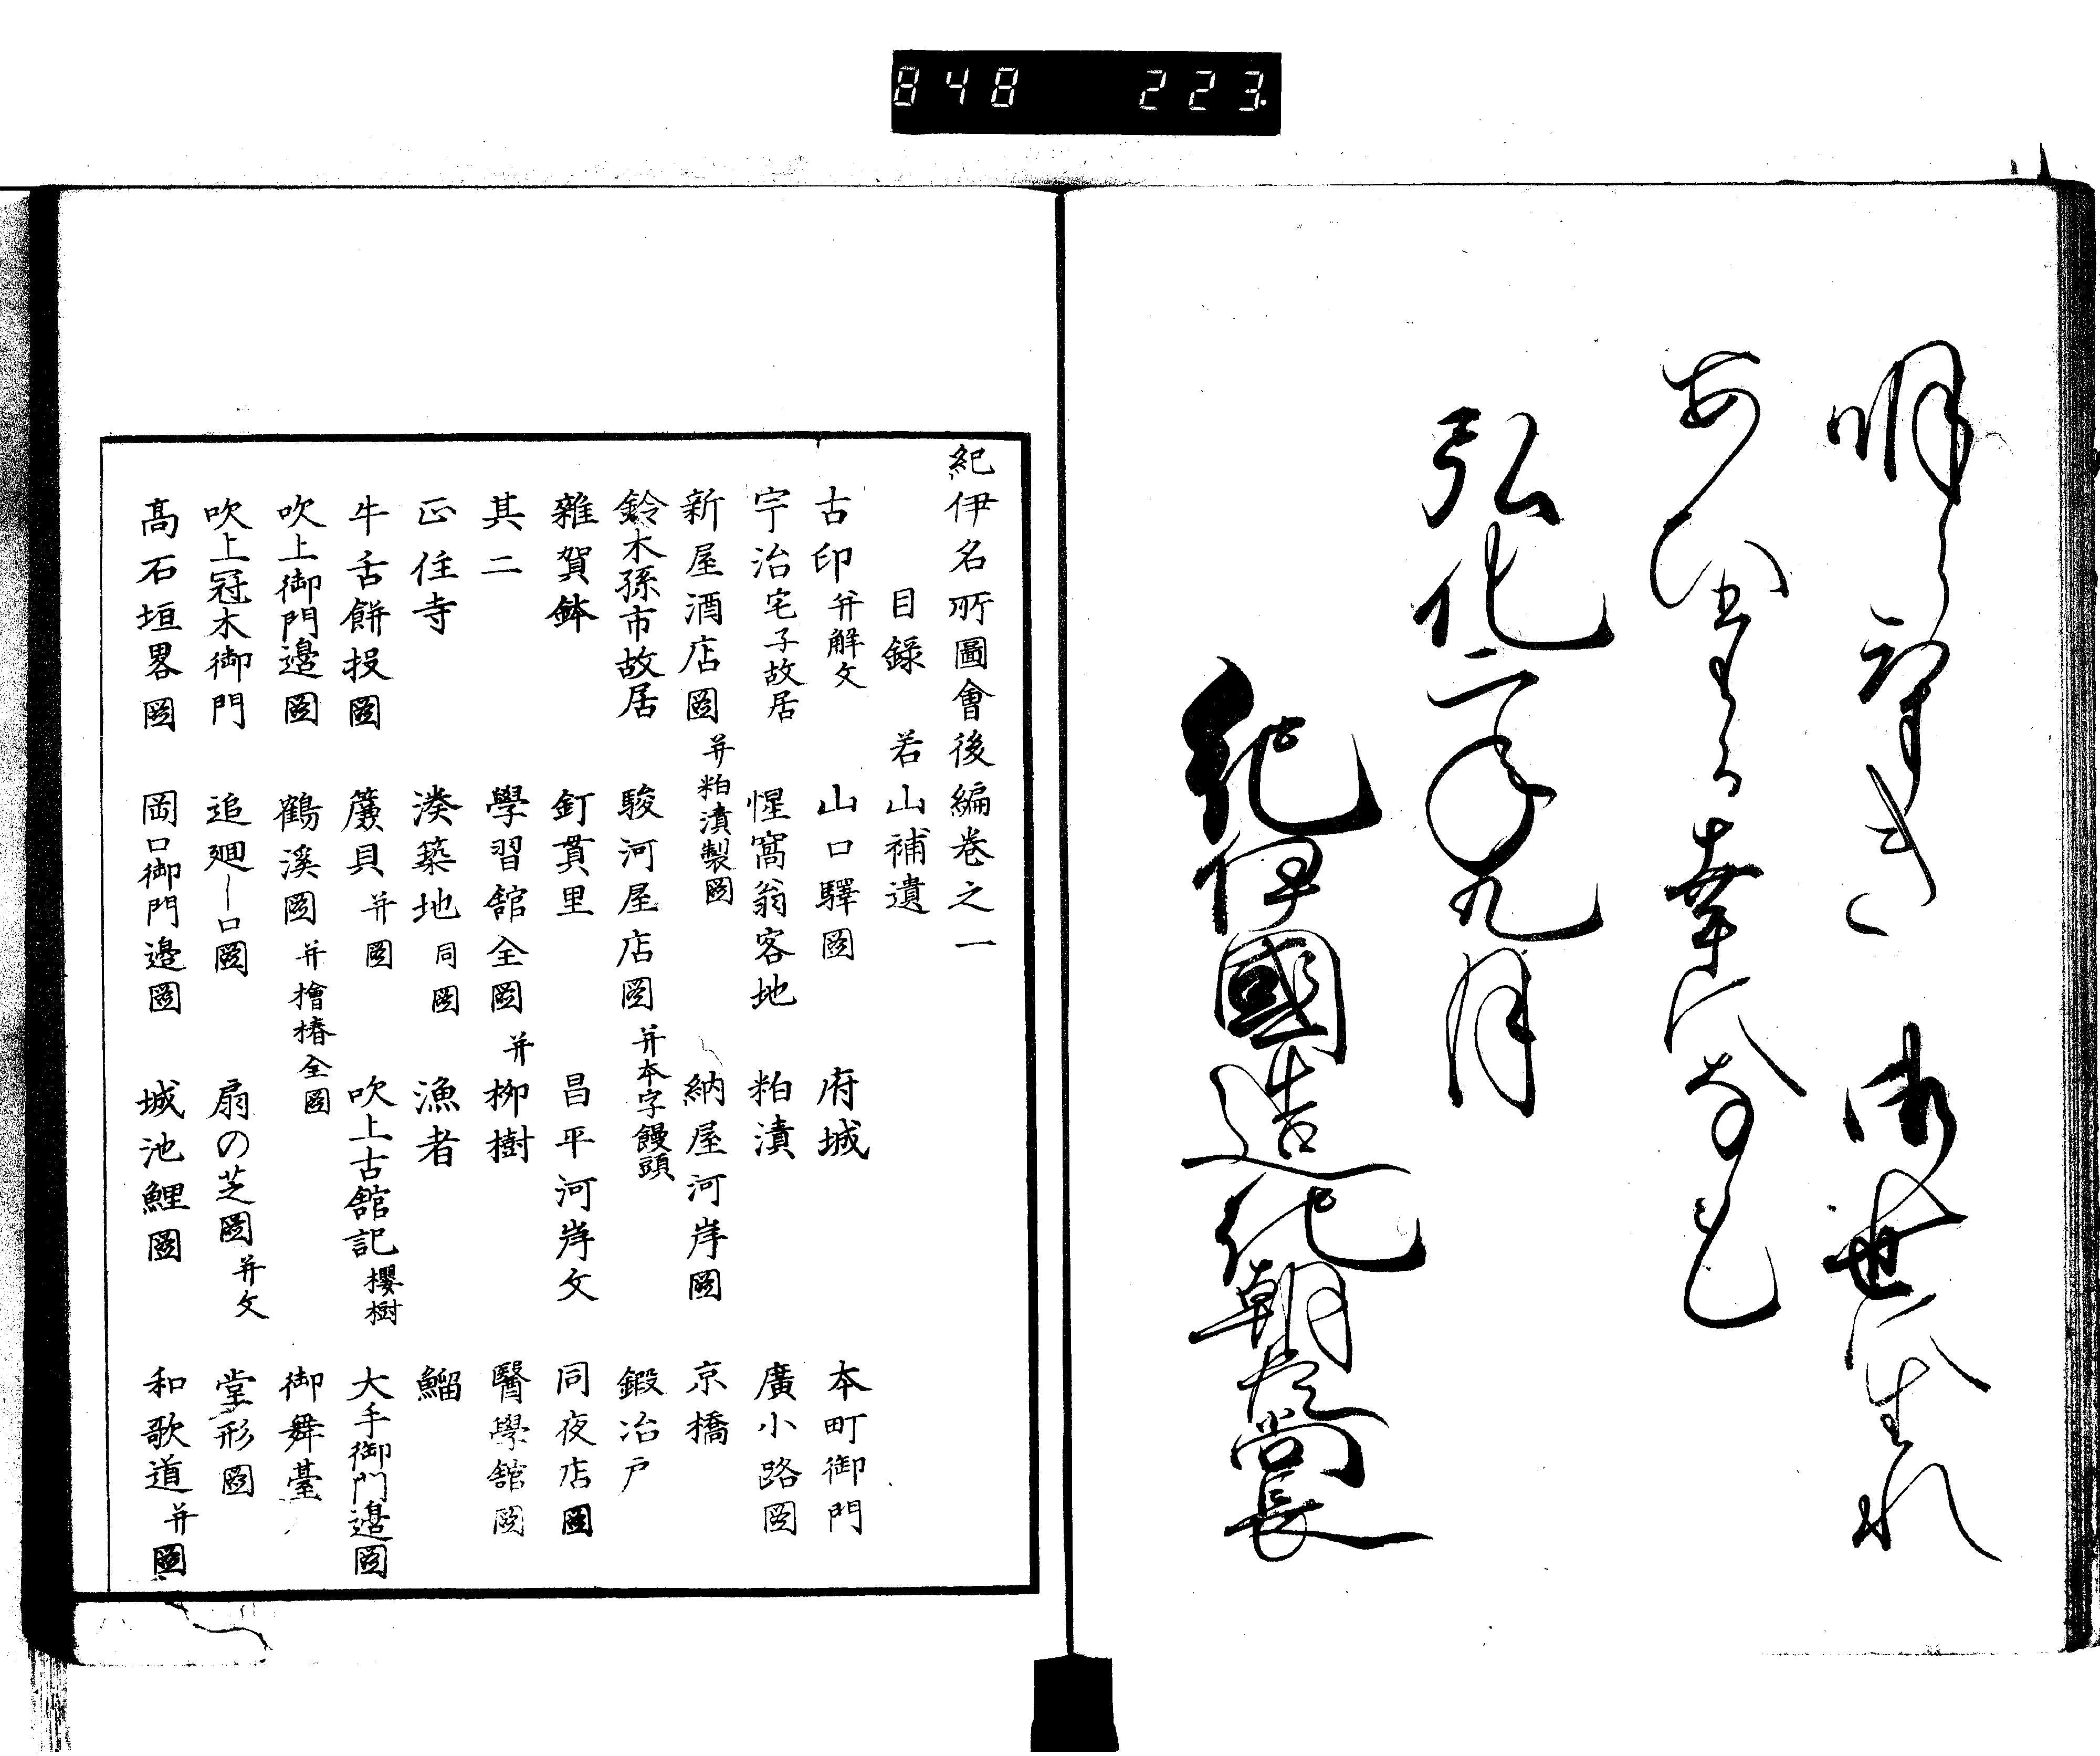 848 223
弘化二年九月
紀伊國造紀朝臣尚長
紀伊名所圖會後編卷之一
目録 若山補遺
古印并解文 山口驛圖 府城 本町御門
宇治宅子故居 惺窩翁客地 粕漬 廣小路圖
新屋酒店圖并粕漬製圖 納屋河岸圖 京橋
鈴木孫市故居 駿河屋店圖并本字饅頭 鍛冶戸
雜賀鉢 釘貫里 昌平河岸文 同夜店圖
其二 學習館全圖并 柳樹 醫學館圖
正住寺 湊築地同圖 漁者 鰡
牛舌餅投圖 簾貝并圖 吹上古館記櫻樹 大手御門邉圖
吹上御門邉圖 鶴溪圖并檜椿全圖 御舞臺
吹上冠木御門 追廻一口圖 扇の芝圖并文 堂形圖
髙石垣畧圖 岡口御門邉圖 城池鯉圖 和歌道并圖